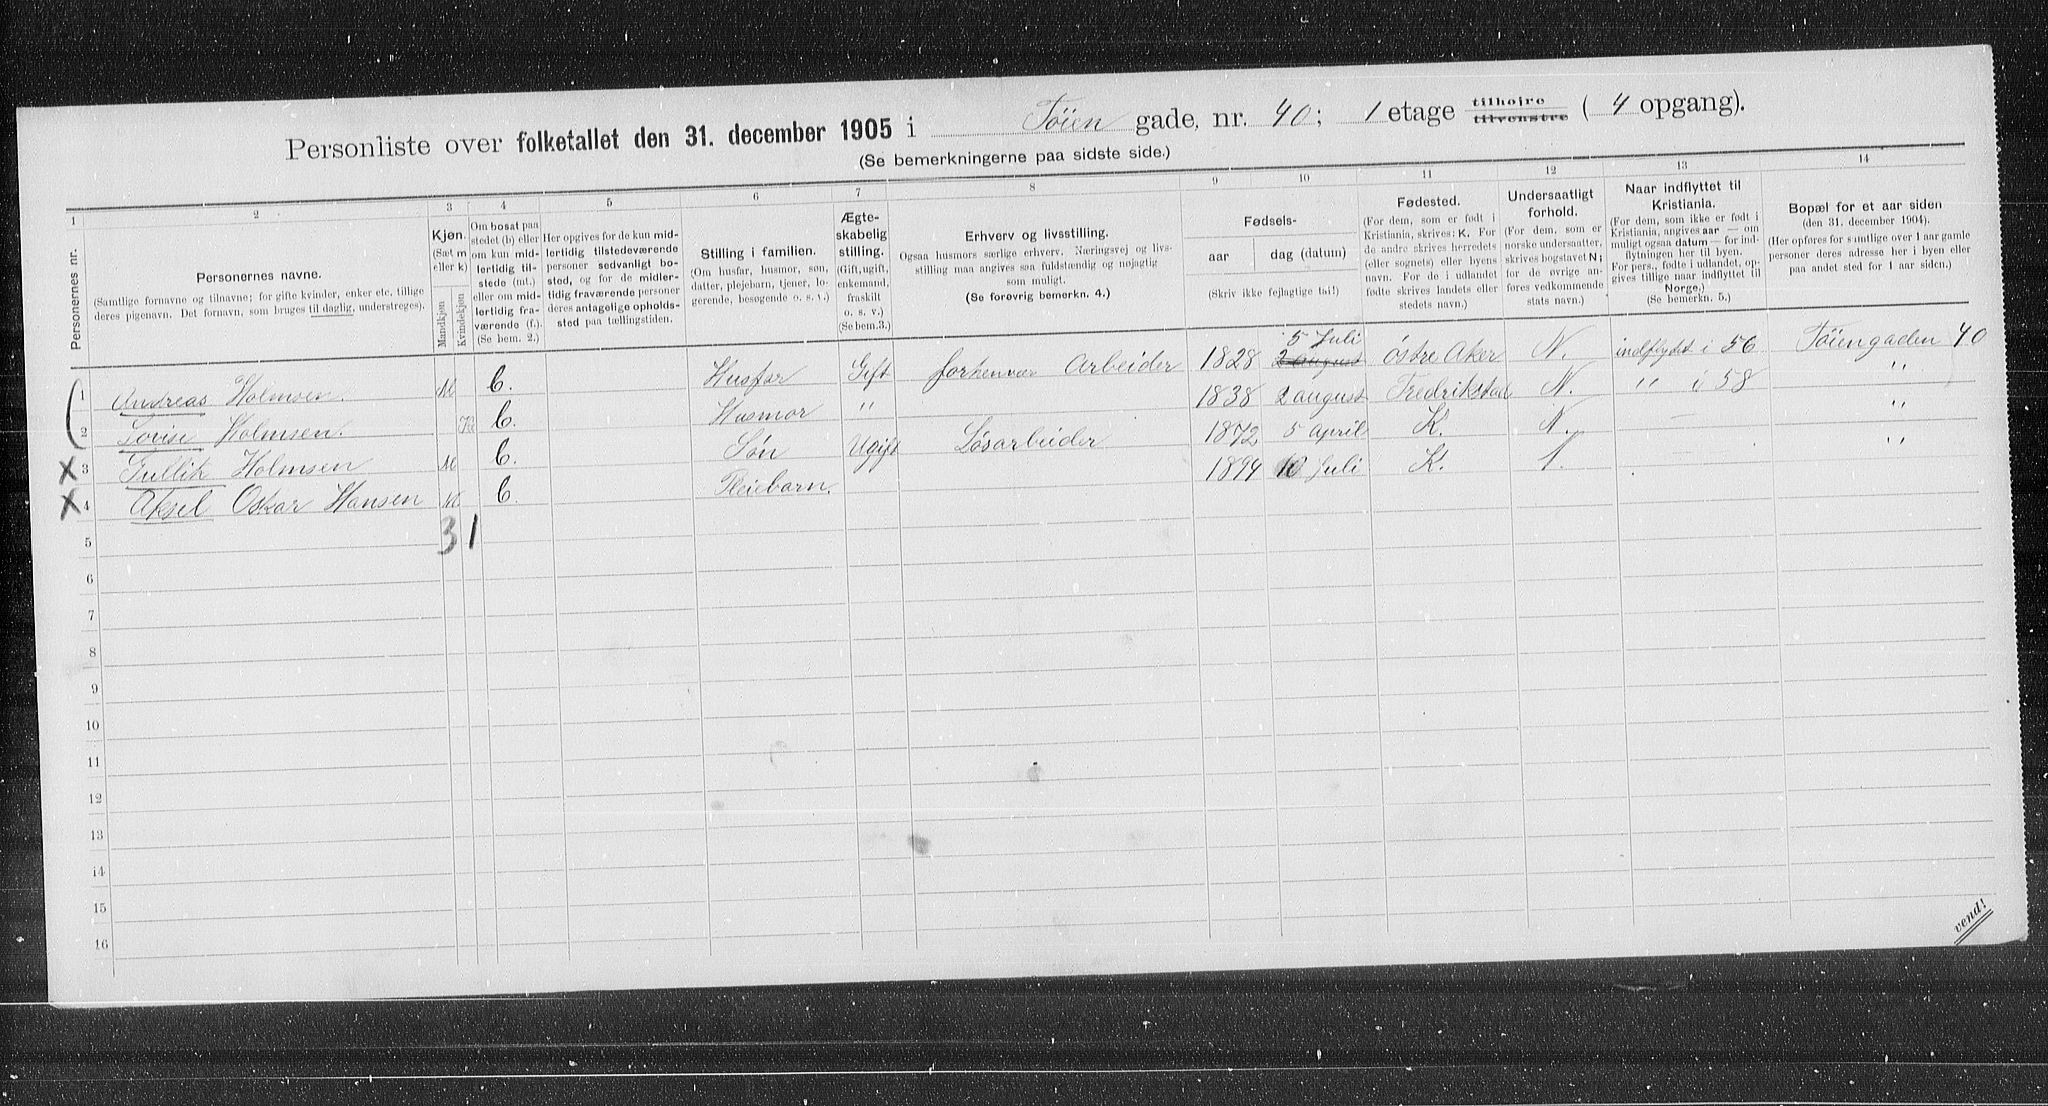 Personliste over folketallet den 31. december 1905 i Töien gade, nr. 40; 1 etage tilhøire tilvenstre ( 4 opgang).
(Se bemerkningerne paa sidste side.)
1 2 3 4 5 6 7 8 9 10 11 12 13 14
Personernes nr.
Personernes navne.
(Samtlige fornavne og tilnavne; for gifte kvinder, enker etc. tillige
deres pigenavn. Det fornavn, som bruges til daglig, understreges).
Kjøn.
(Sæt m
eller k)
Mandkjøn
Kvindekjøn
Om bosat paa
stedet (b) eller
om kun mid-
lertidig til-
stede (mt.)
eller om mid-
lertidig fra-
værende (f.).
(Se bem. 2.)
Her opgives for de kun mid-
lertidig tilstedeværende
personer sedvanligt bo-
sted, og for de midler-
tidig fraværende personer
deres antagelige opholds-
sted paa tællingstiden.
Stilling i familien.
(Om husfar, husmor, søn,
datter, plejebarn, tjener, lo-
gerende, besøgende o. s. v.)
Ægte-
skabelig
stilling.
(Gift, ugift,
enkemand,
fraskilt
o. s. v.)
(Se bem.3.)
Erhverv og livsstilling.
Ogsaa husmors særlige erhverv. Næringsvej og livs-
stilling maa angives saa fuldstændig og nøjagtig
som muligt.
(Se forøvrig bemerkn. 4.)
Fødsels-
aar dag (datum)
(Skriv ikke fejlagtige tal!)
Fødested.
(For dem, som er født i
Kristiania, skrives: K. For
de andre skrives herredets
(eller sognets) eller byens
navn. For de i udlandet
fødte skrives landets eller
stedets navn.)
Undersaatligt
forhold.
(For dem, som er
norske undersaatter,
skrives bogstavet N;
for de øvrige an-
føres vedkommende
stats navn.)
Naar indflyttet til
Kristiania.
(For dem, som ikke er født i
Kristiania, angives aar — om
muligt ogsaa datum — for ind-
flytningen her til byen.
For pers. fødte i udlandet, op-
gives tillige naar indflyttet til
Norge.)
(Se bemerkn. 5.)
Bopæl for et aar siden
(den 31. december 1904).
(Her opføres for samtlige over 1 aar gamle
personer deres adresse her i byen eller
paa andet sted for 1 aar siden.)
1 Andreas Holmsen. M b. Husfar Gift forhenvær Arbeider 1828 2 august 5 Juli östre Aker N. indflydt i 56 Töiengaden 40
2 Lovise Holmsen. K b. Husmor " 1838 2 august Fredrikstad N. " i 58 "
X 3 Gullik Holmsen M b. Søn Ugift Løsarbeider 1872 5 april K. N. — "
X 4 Aksel Oskar Hansen M b. Pleiebarn. 1894 10 Juli K. — "
3 1
5
6
7
8
9
10
11
12
13
14
15
16
vend!